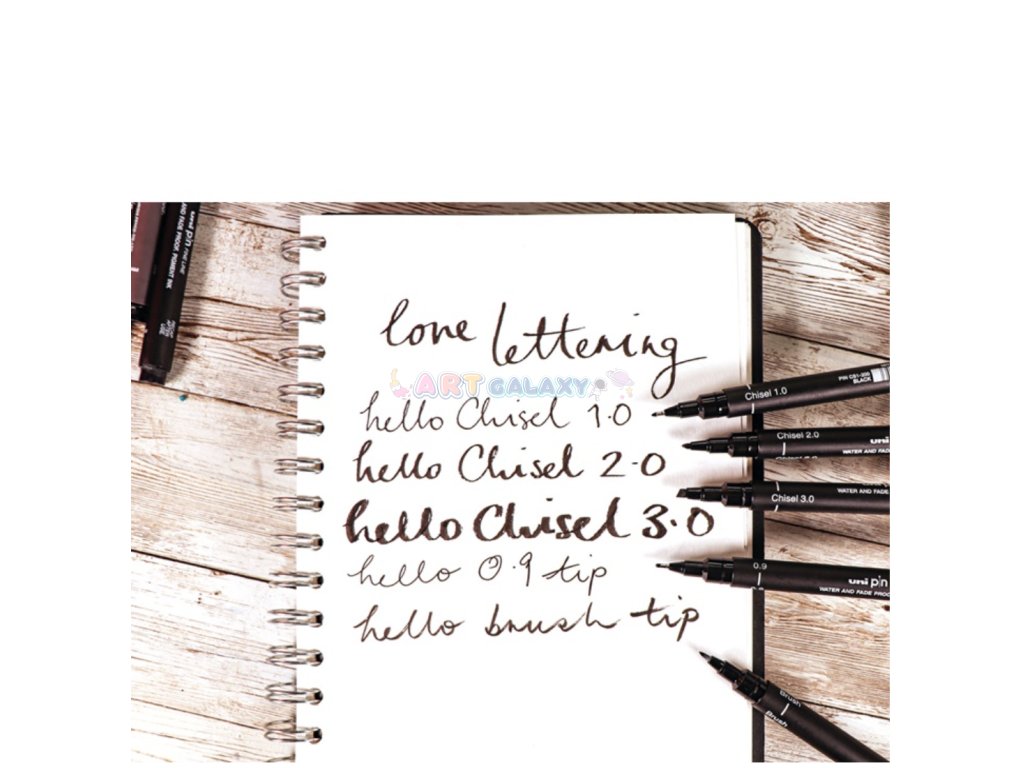 love lettering
ART GALAXY
hello Chisel 1.0
hello Chisel 2.0
hello Chisel 3.0
hello 0.9 tip
hello brush tip
Chisel 1.0
PIN CS1-200
BLACK
Chisel 2.0
uni
WATER AND FADE
Chisel 3.0
WATER AND FADE
0.9
uni pin
WATER AND FADE PROO
Brush
Brush
uni pin FINE LINE
AND FADE PROOF, PIGMENT INK